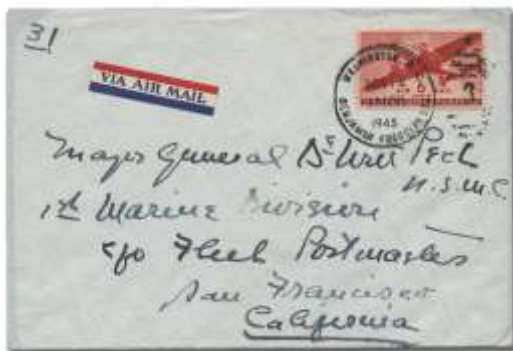 31
VIA AIR MAIL
WASHINGTON
1945
Major General DeWitt Peck
U.S.M.C.
1st Marine Division
c/o Fleet Postmaster
San Francisco
California